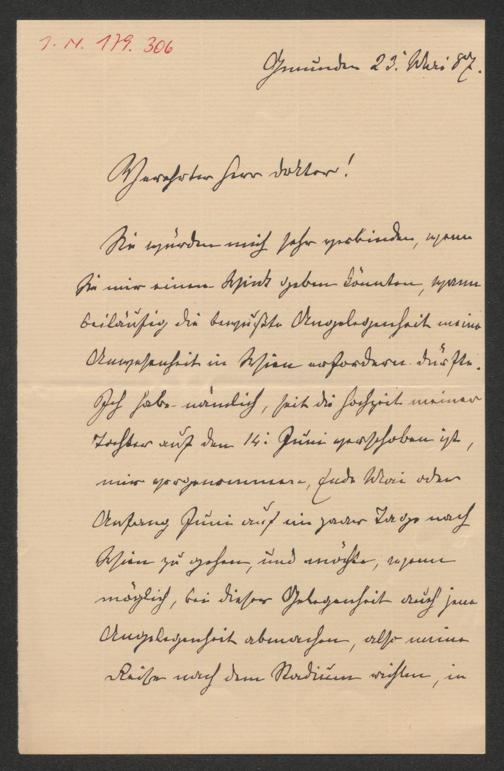 I. N. 179.306
Gmunden 23. Mai 87.
Verehrter Herr Doktor!
Sie würden mich sehr verbinden, wenn
Sie mir einen Wink geben könnten, wann
beiläufig die bewußte Angelegenheit meine
Anwesenheit in Wien erfordern dürfte.
Ich habe nämlich, seit die Hochzeit meiner
Tochter auf den 14: Juni verschoben ist,
mir vorgenommen, Ende Mai oder
Anfang Juni auf ein paar Tage nach
Wien zu gehen, und möchte, wenn
möglich, bei dieser Gelegenheit auch jene
Angelegenheit abmachen, also meine
Reise nach dem Stadium richten, in